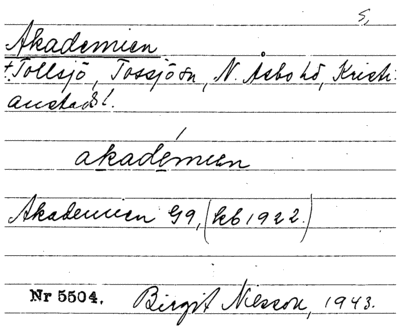 5,
Akademien
† Tollsjö, Tossjö sn, N. Åsbo hd, Kristi-
anstads l.
akadémien
Akademien G9, (kb 1922.)
Nr 5504. Birgit Nilsson, 1943.